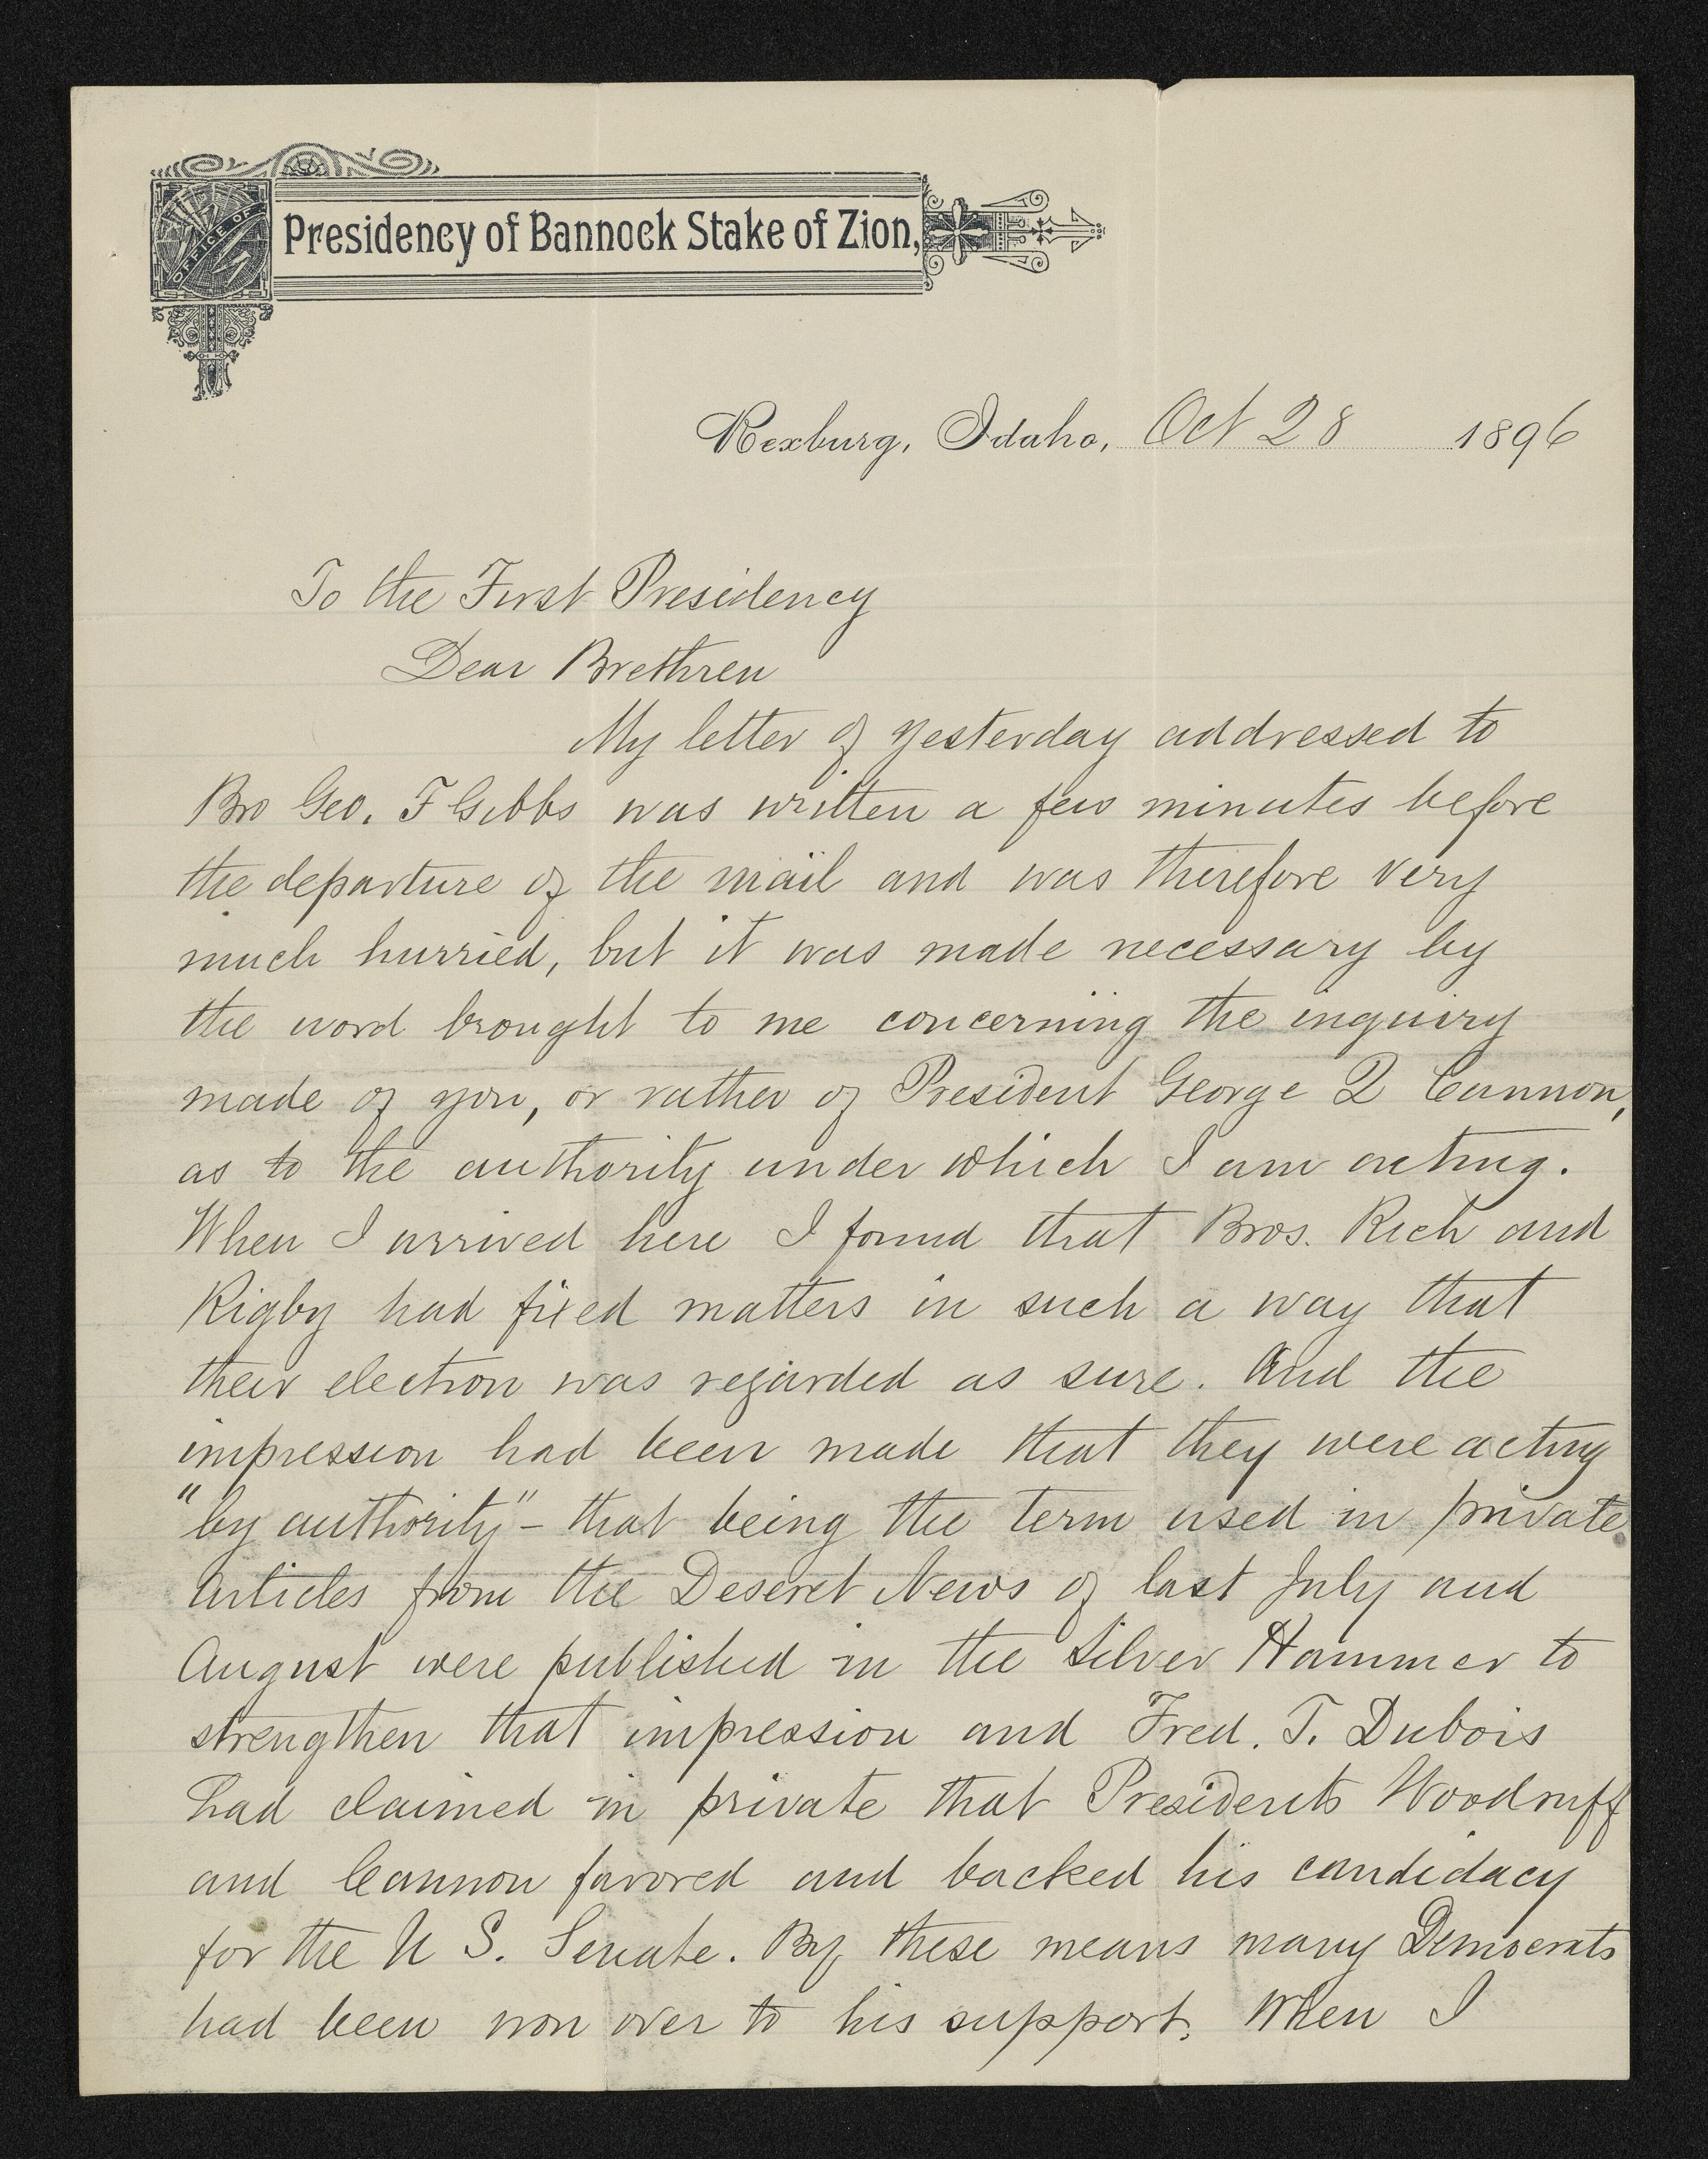 OFFICE OF
Presidency of Bannock Stake of Zion,
Rexburg, Idaho, Oct 28 1896
To the First Presidency
Dear Brethren
My letter of yesterday addressed to
Bro Geo. F Gibbs was written a few minutes before
the departure of the mail and was therefore very
much hurried, but it was made necessary by
the word brought to me concerning the inquiry
made of you, or rather of President George Q Cannon,
as to the authority under which I am acting.
When I arrived here I found that Bros. Rich and
Rigby had fixed matters in such a way that
their election was regarded as sure. And the
impression had been made that they were acting
"by authority" - that being the term used in private.
Articles from the Deseret News of last July and
August were published in the Silver Hammer to
strengthen that impression and Fred. T. Dubois
had claimed in private that Presidents Woodruff
and Cannon favored and backed his candidacy
for the U S. Senate. By these means many Democrats
had been won over to his support. When I